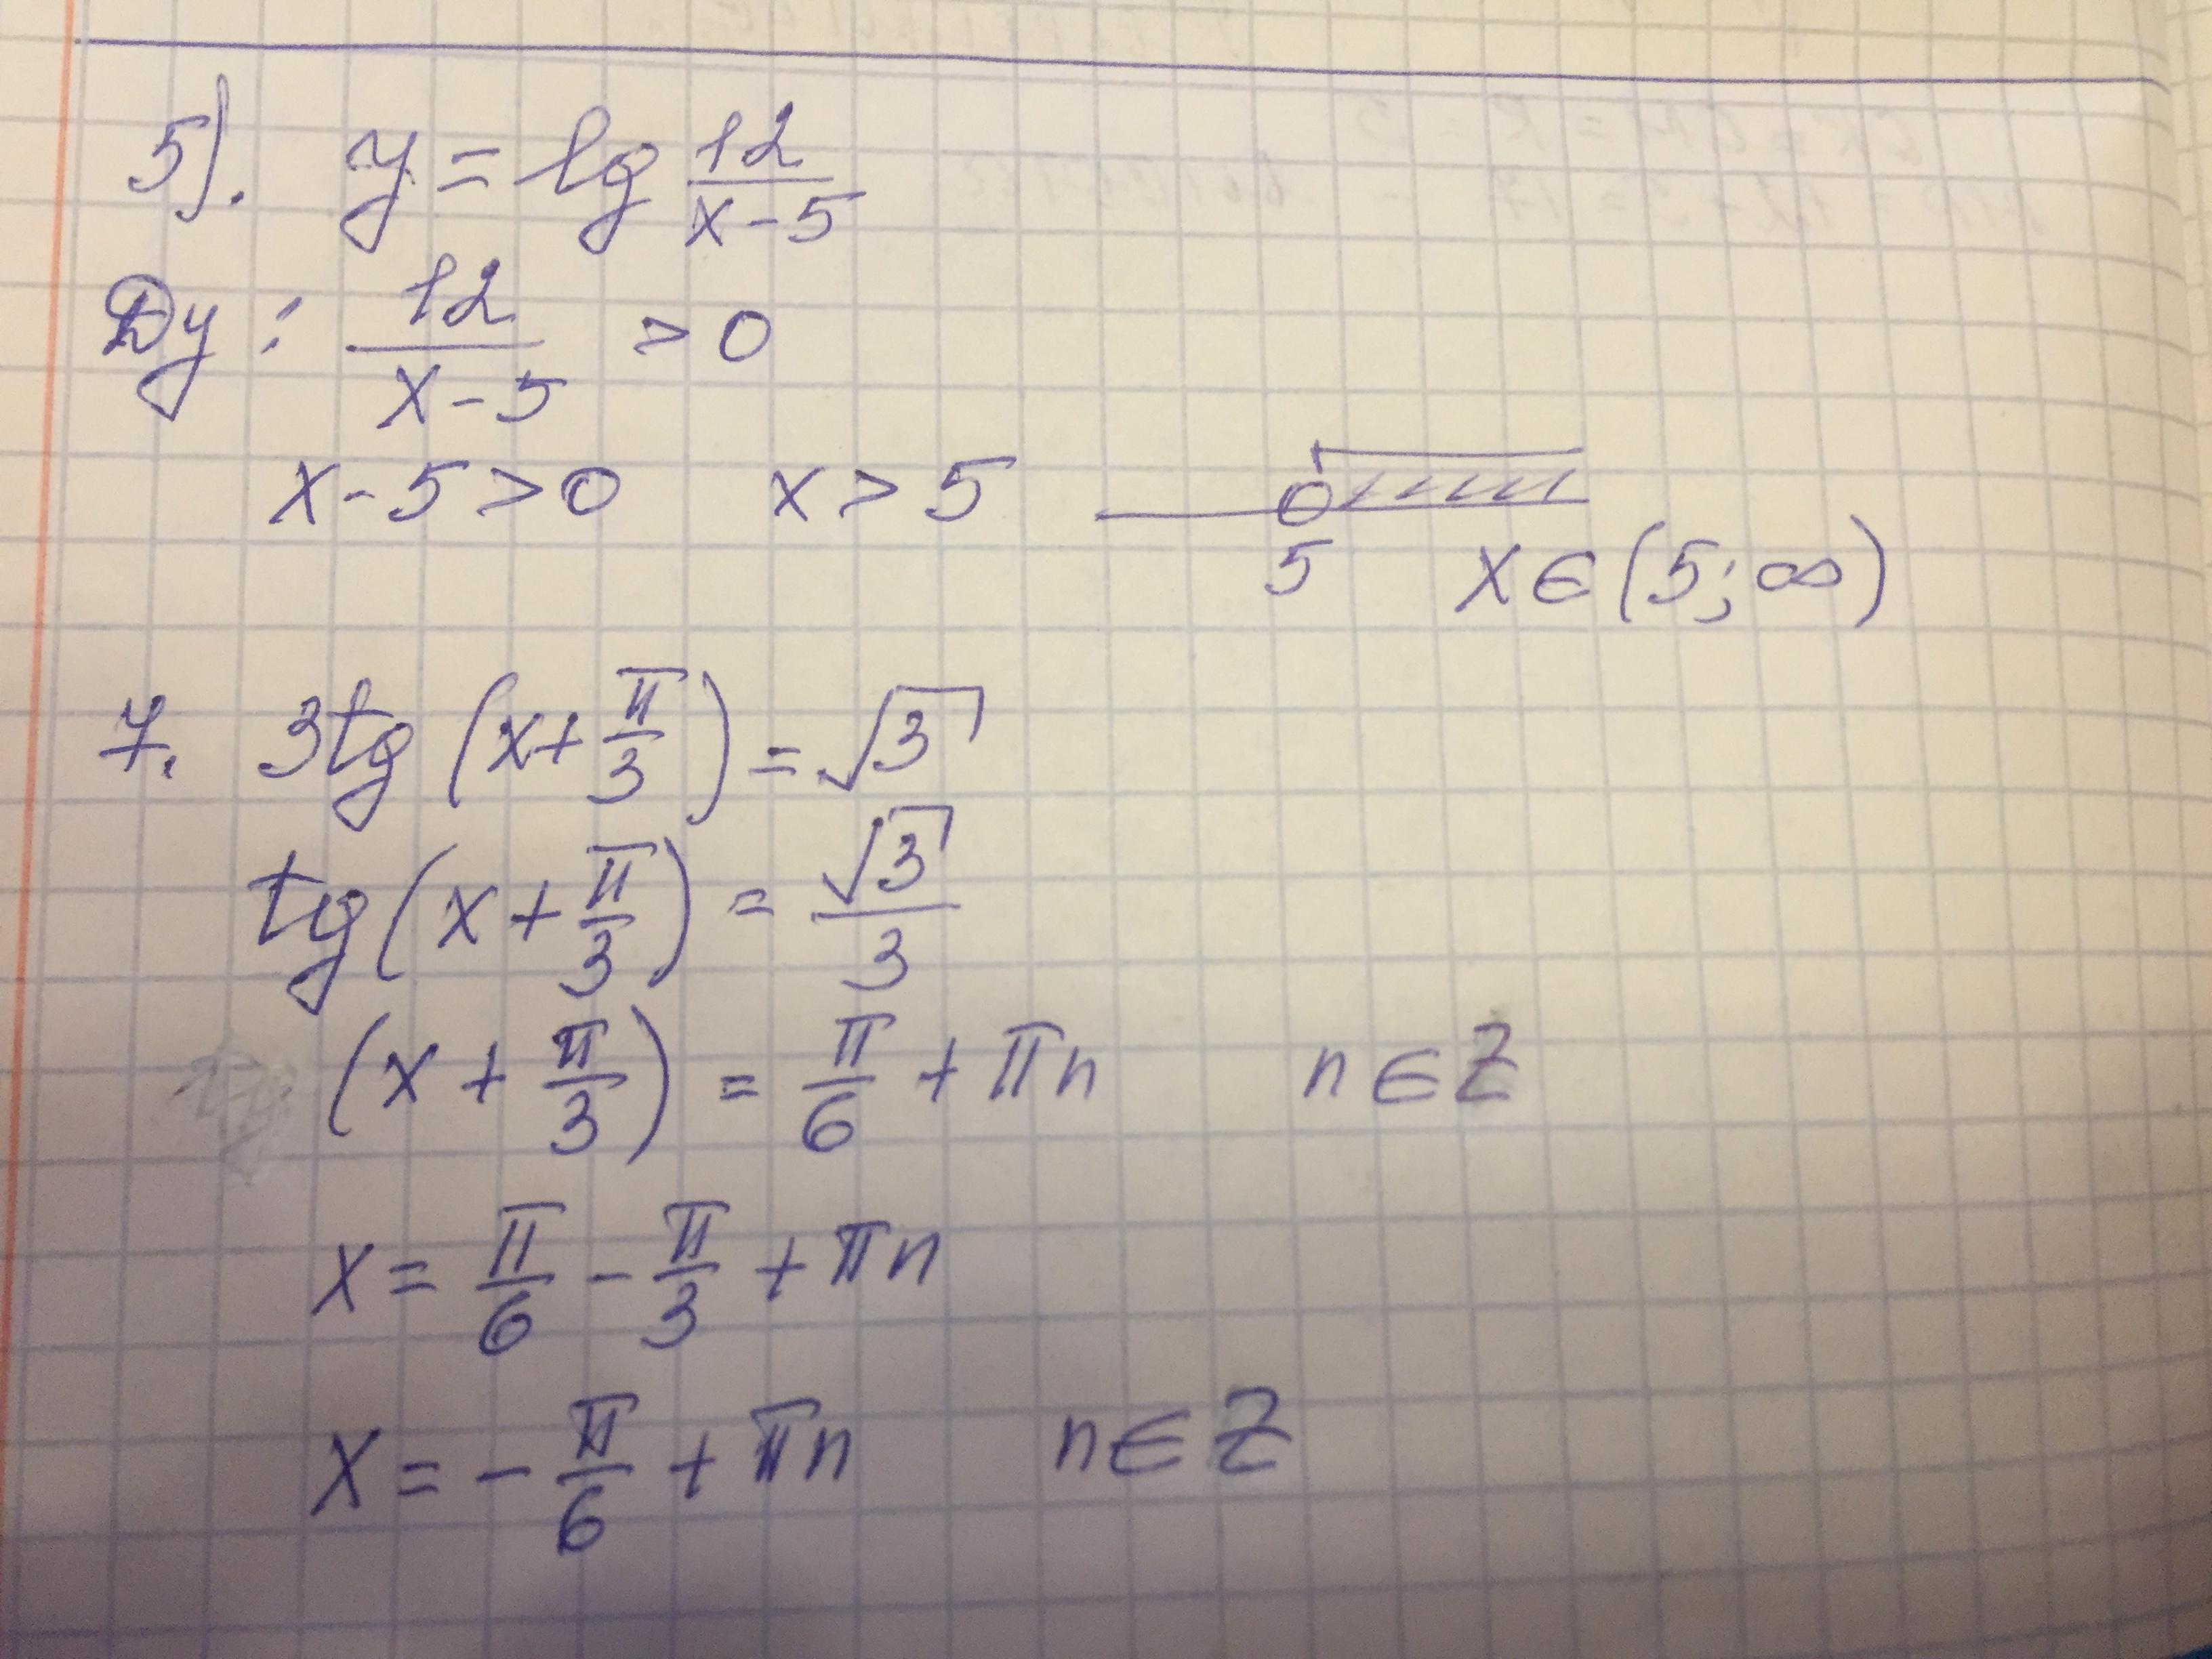 5). y = lg 12/(x-5)
Dy: 12/(x-5) > 0
x-5>0 x>5
5 x∈(5;∞)
7. 3tg(x+π/3)=√3
tg(x+π/3)=√3/3
(x+π/3)=π/6+πn n∈Z
x=π/6-π/3+πn
x=-π/6+πn n∈Z